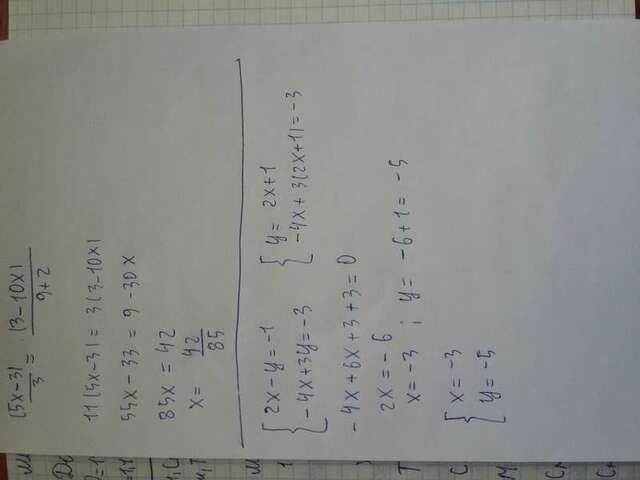 (5x-3)/3 = (3-10x)/(9+2)
11(5x-3) = 3(3-10x)
55x - 33 = 9 - 30x
85x = 42
x = 42/85
{ 2x - y = -1
-4x + 3y = -3
{ y = 2x+1
-4x + 3(2x+1) = -3
-4x + 6x + 3 + 3 = 0
2x = -6
x = -3 ; y = -6+1 = -5
{ x = -3
y = -5